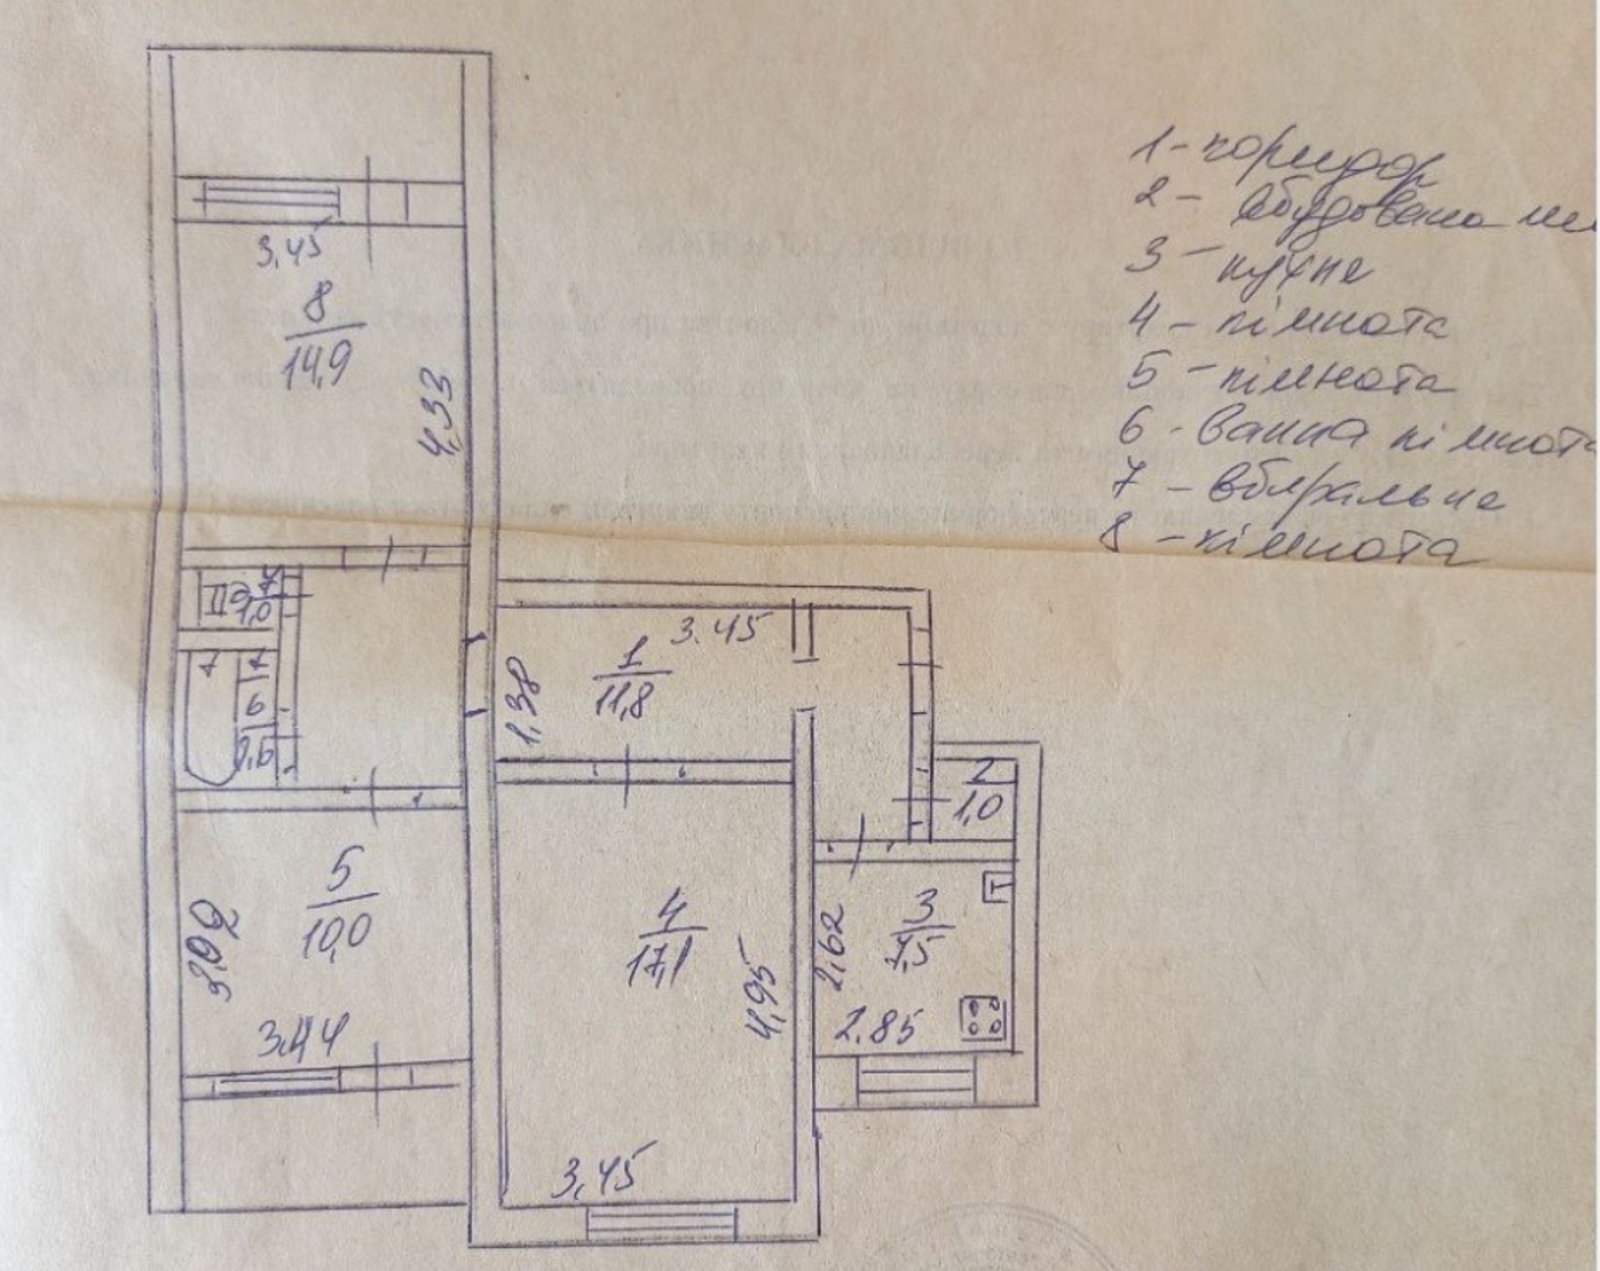 3,45
8
14,9
4,33
7
1,0
6
2,6
3.45
1
11,8
1,38
2
1,0
5
10,0
3,02
3,44
4
17,1
4,95
3,45
3
7,5
2,62
2.85
1 - коридор
2 - вбудована
3 - кухня
4 - кімната
5 - кімната
6 - ванна кімната
7 - вбиральня
8 - кімната